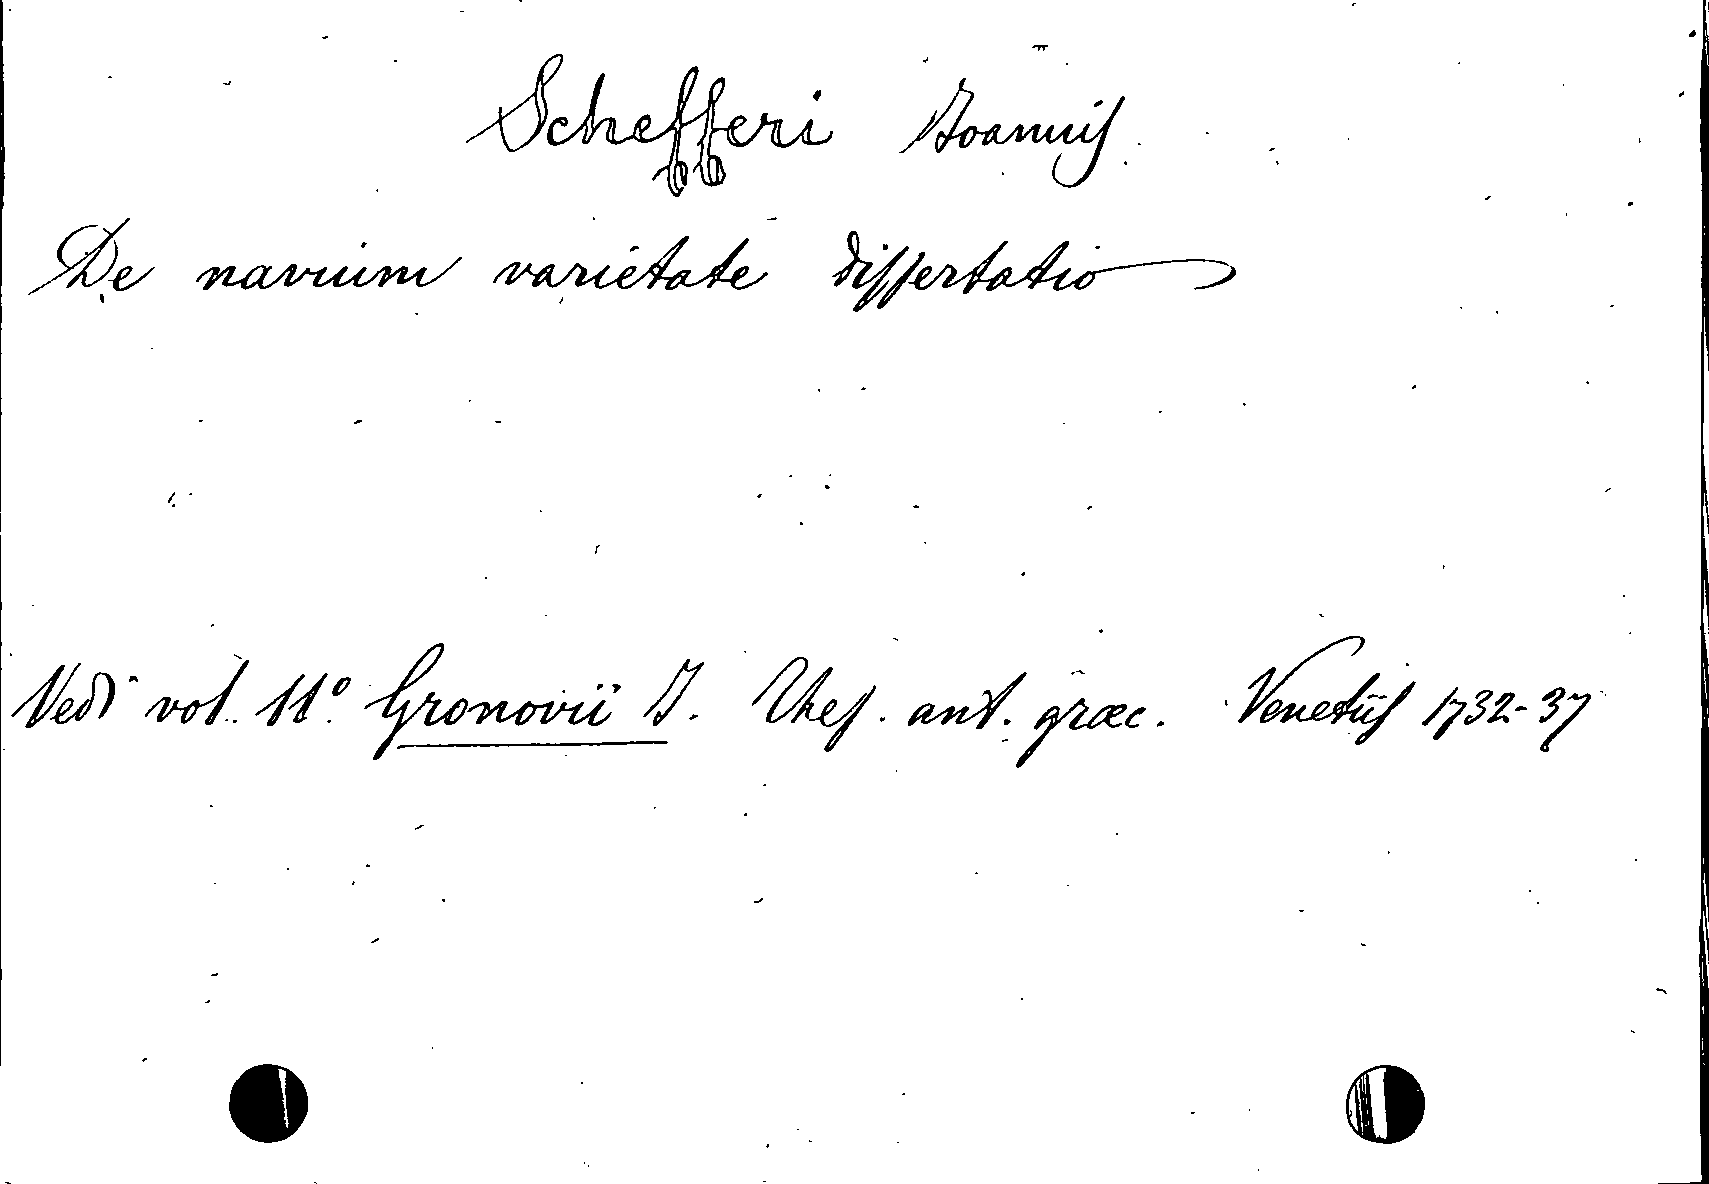 Schefferi Ioannis
De navium varietate dissertatio
Vedi vol. 11º Gronovii J. Thes. ant. græc. Venetiis 1732-37